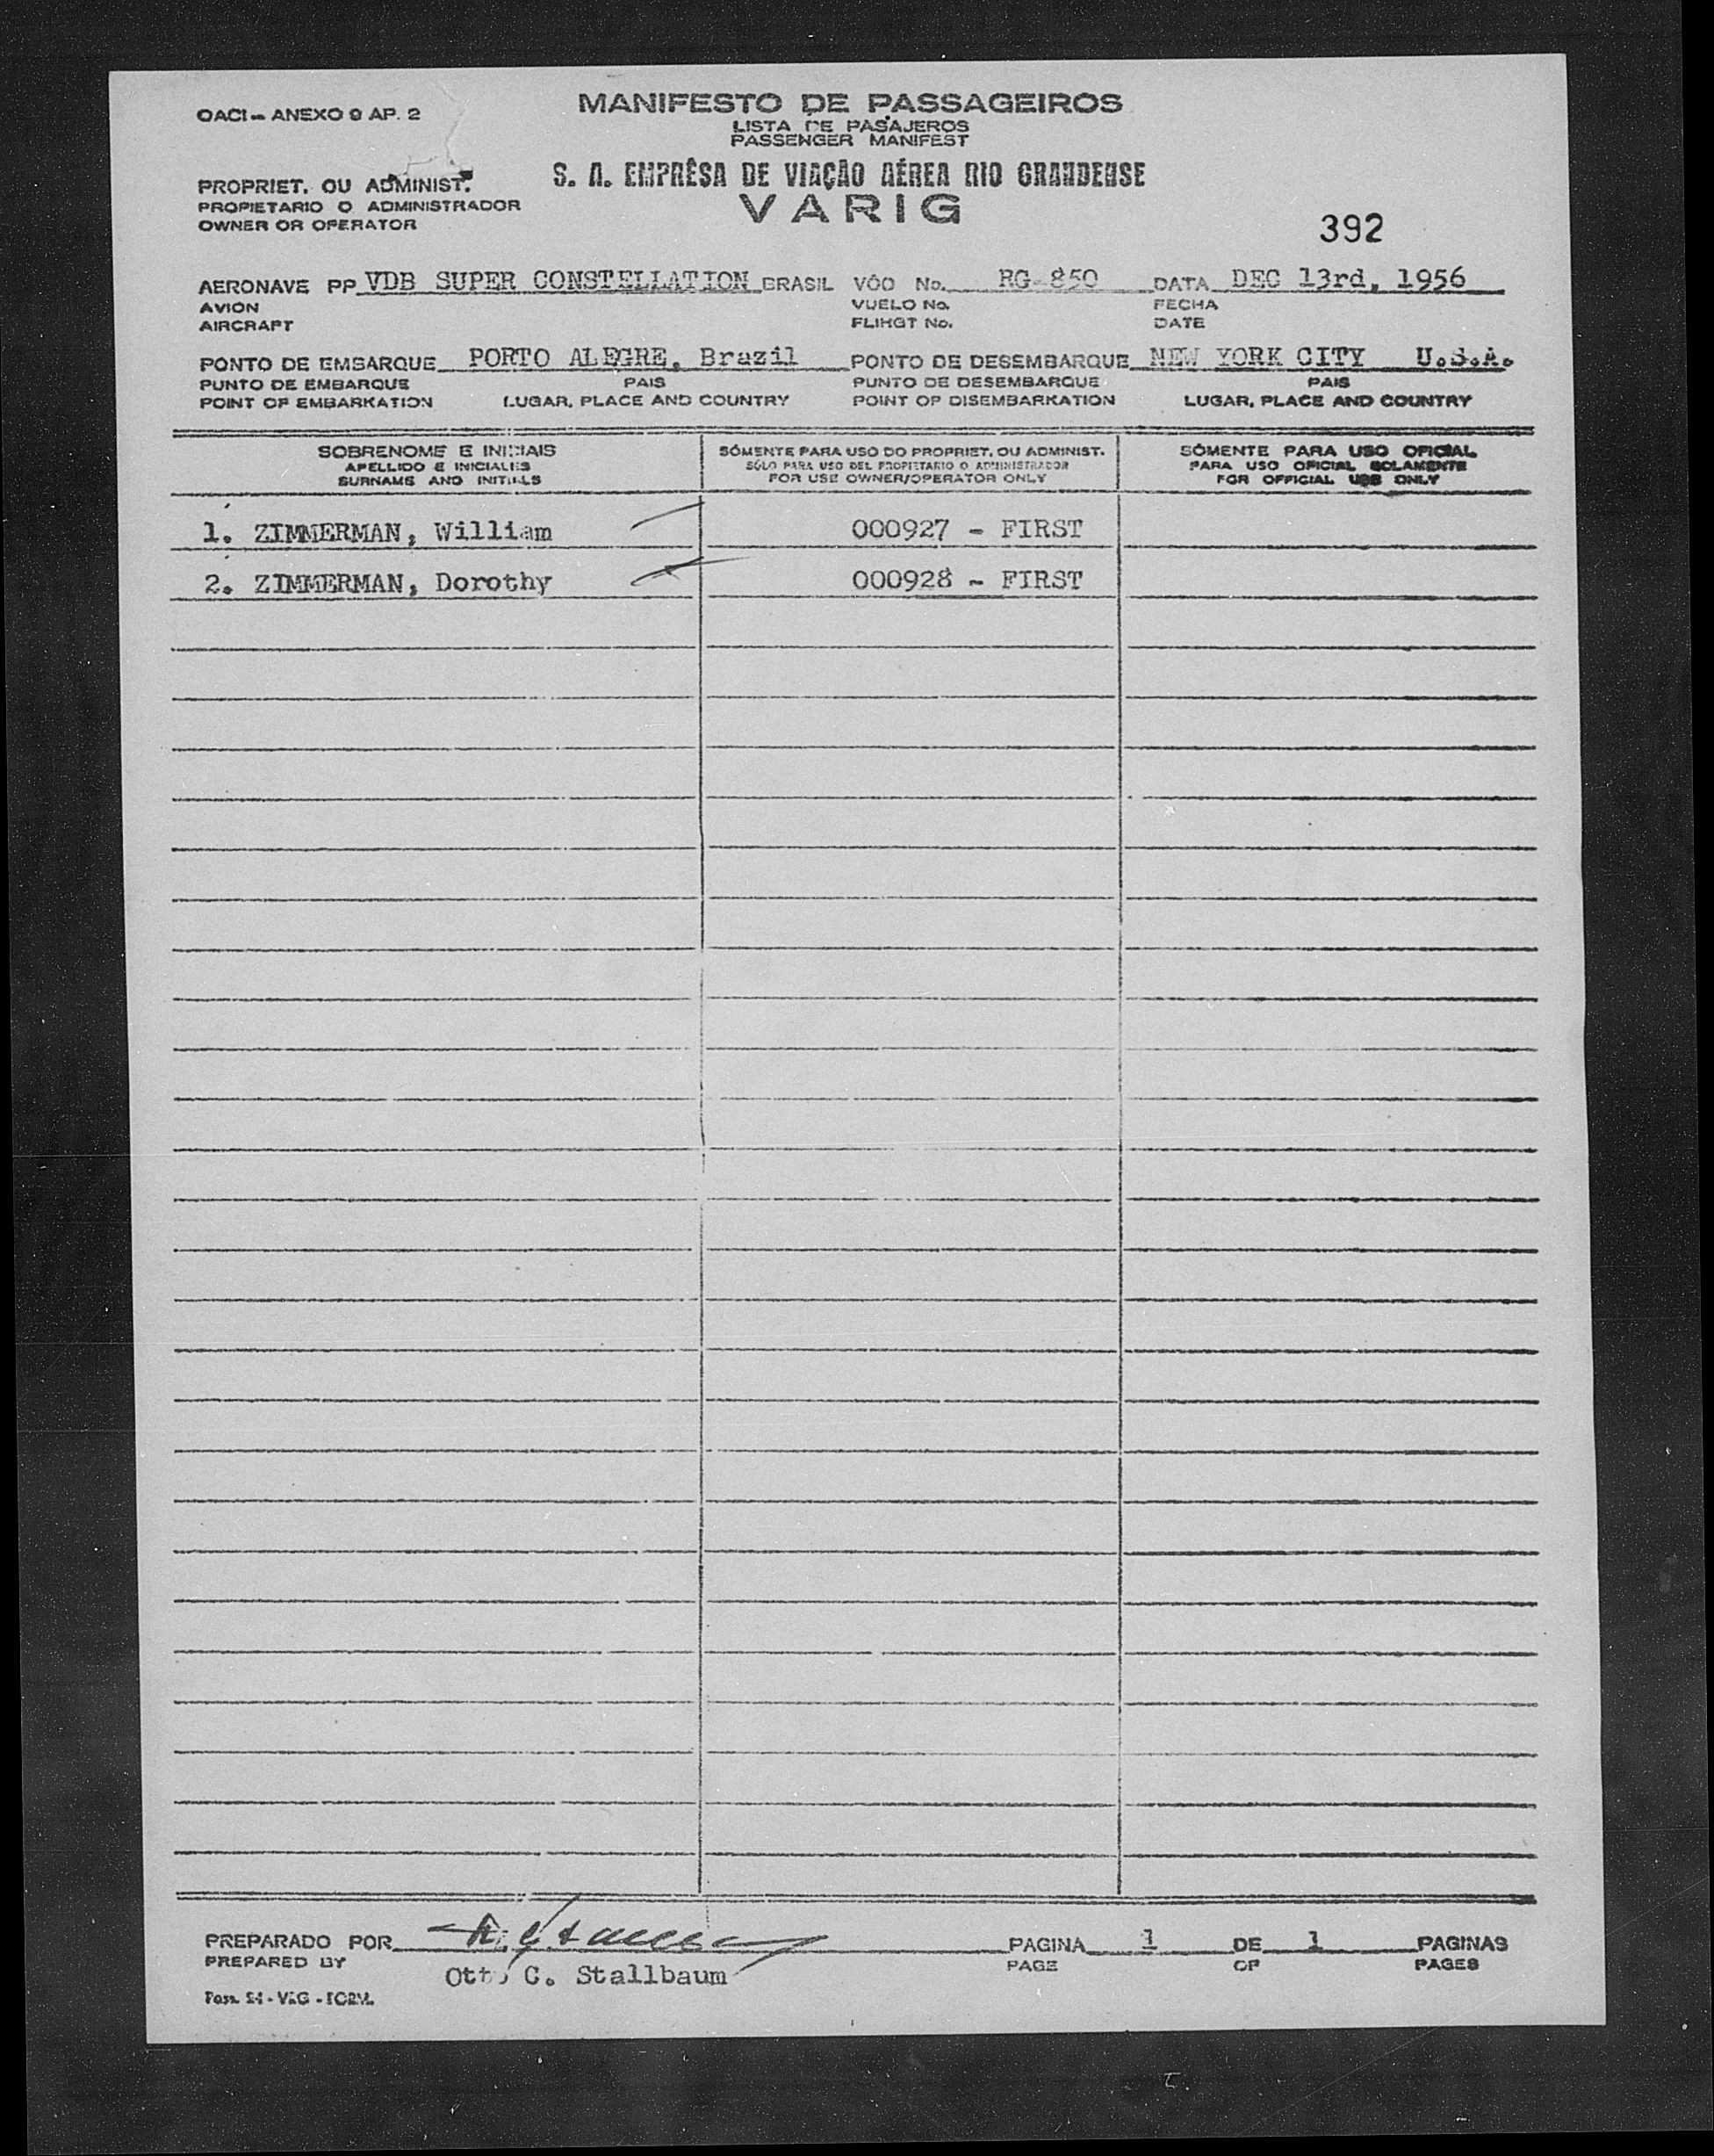 OACI - ANEXO 9 AP. 2
MANIFESTO DE PASSAGEIROS
LISTA DE PASAJEROS
PASSENGER MANIFEST
PROPRIET. OU ADMINIST.
PROPIETARIO O ADMINISTRADOR
OWNER OR OPERATOR
S. A. EMPRÊSA DE VIAÇÃO AÉREA RIO GRANDENSE
VARIG
392
AERONAVE PP VDB SUPER CONSTELLATION BRASIL VÔO No. RG-850 DATA DEC 13rd, 1956
AVION VUELO No. FECHA
AIRCRAFT FLIHGT No. DATE
PONTO DE EMBARQUE PORTO ALEGRE, Brazil PONTO DE DESEMBARQUE NEW YORK CITY U.S.A.
PUNTO DE EMBARQUE PAIS PUNTO DE DESEMBARQUE PAIS
POINT OF EMBARKATION LUGAR, PLACE AND COUNTRY POINT OF DISEMBARKATION LUGAR, PLACE AND COUNTRY
SOBRENOME E INICIAIS
APELLIDO E INICIALES
SURNAME AND INITIALS
SÓMENTE PARA USO DO PROPRIET. OU ADMINIST.
SÓLO PARA USO DEL PROPIETARIO O ADMINISTRADOR
FOR USE OWNER/OPERATOR ONLY
SÓMENTE PARA USO OFICIAL
PARA USO OFICIAL SOLAMENTE
FOR OFFICIAL USE ONLY
1. ZIMMERMAN, William 000927 - FIRST
2. ZIMMERMAN, Dorothy 000928 - FIRST
PREPARADO POR PAGINA 1 DE 1 PAGINAS
PREPARED BY Otto C. Stallbaum PAGE OF PAGES